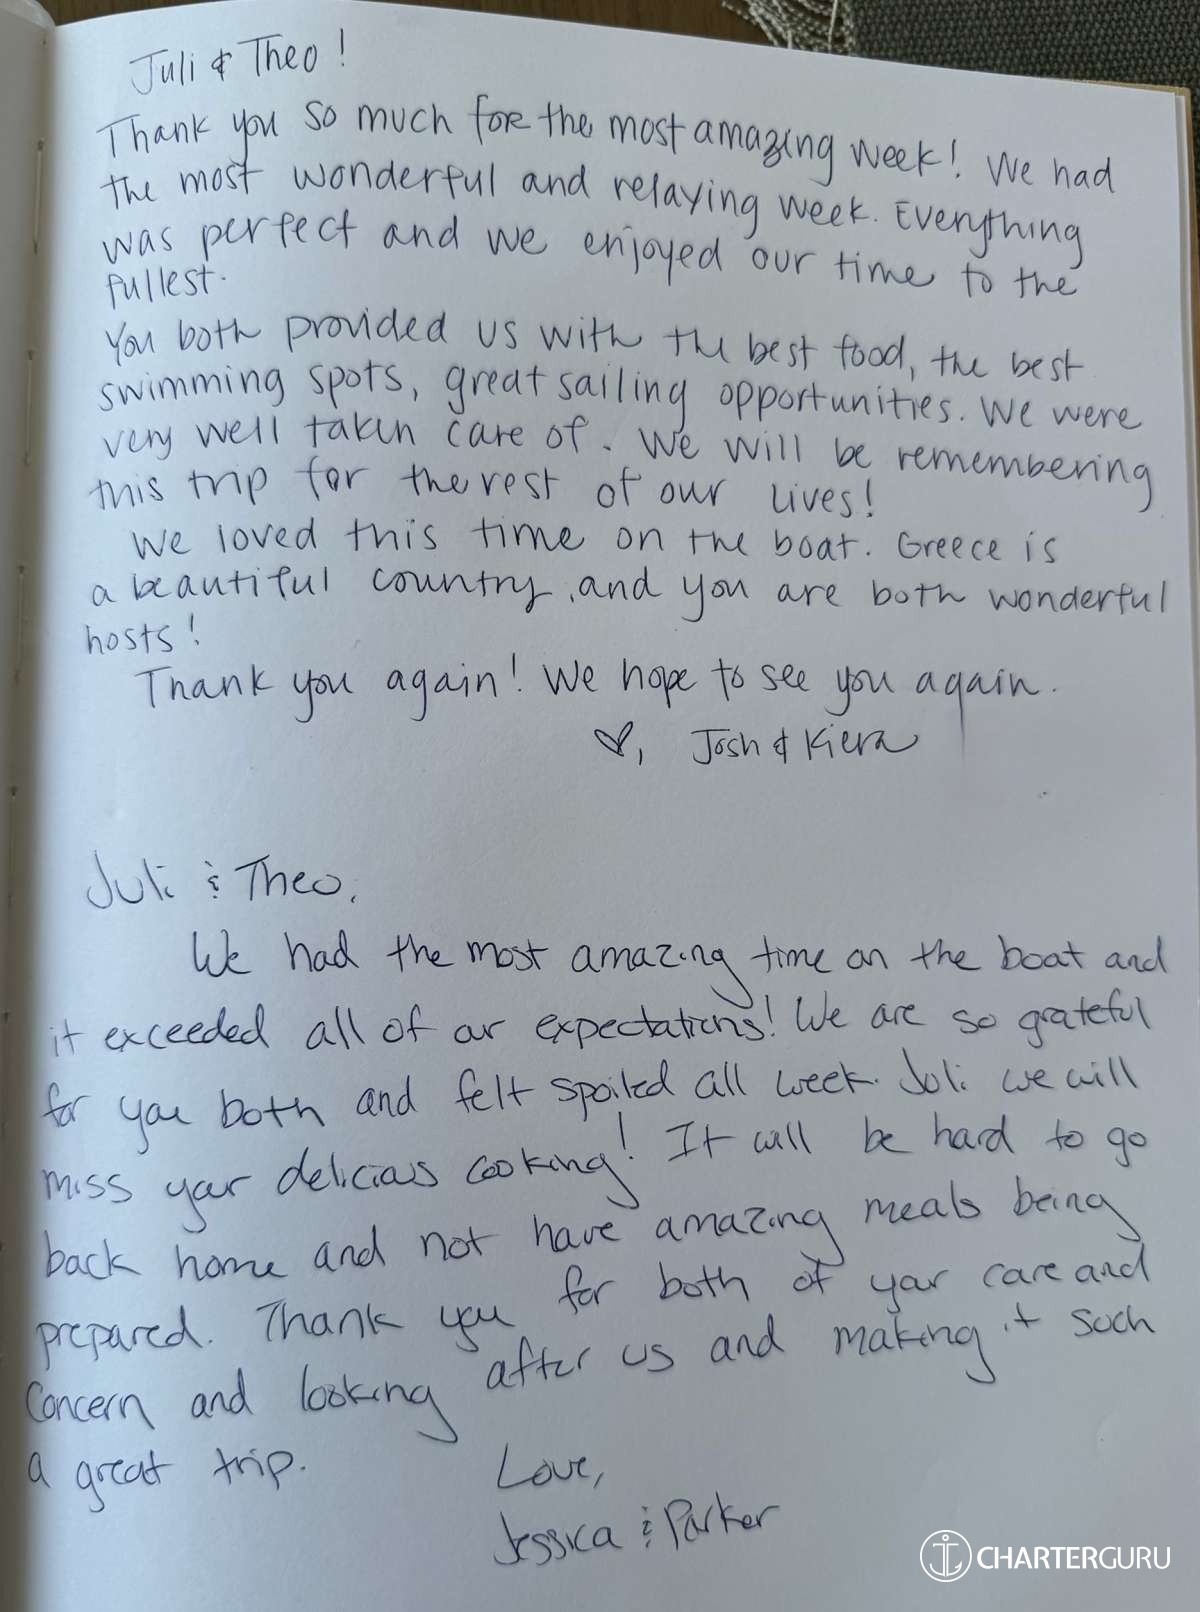 Juli & Theo!
Thank you so much for the most amazing week! We had
the most wonderful and relaxing week. Everything
was perfect and we enjoyed our time to the
fullest.
You both provided us with the best food, the best
swimming spots, great sailing opportunities. We were
very well taken care of. We will be remembering
this trip for the rest of our lives!
We loved this time on the boat. Greece is
a beautiful country, and you are both wonderful
hosts!
Thank you again! We hope to see you again.
♡, Josh & Kiera
Juli & Theo,
We had the most amazing time on the boat and
it exceeded all of our expectations! We are so grateful
for you both and felt spoiled all week. Juli we will
miss your delicious cooking! It will be hard to go
back home and not have amazing meals being
prepared. Thank you for both of your care and
concern and looking after us and making it such
a great trip.
Love,
Jessica & Parker
CHARTERGURU